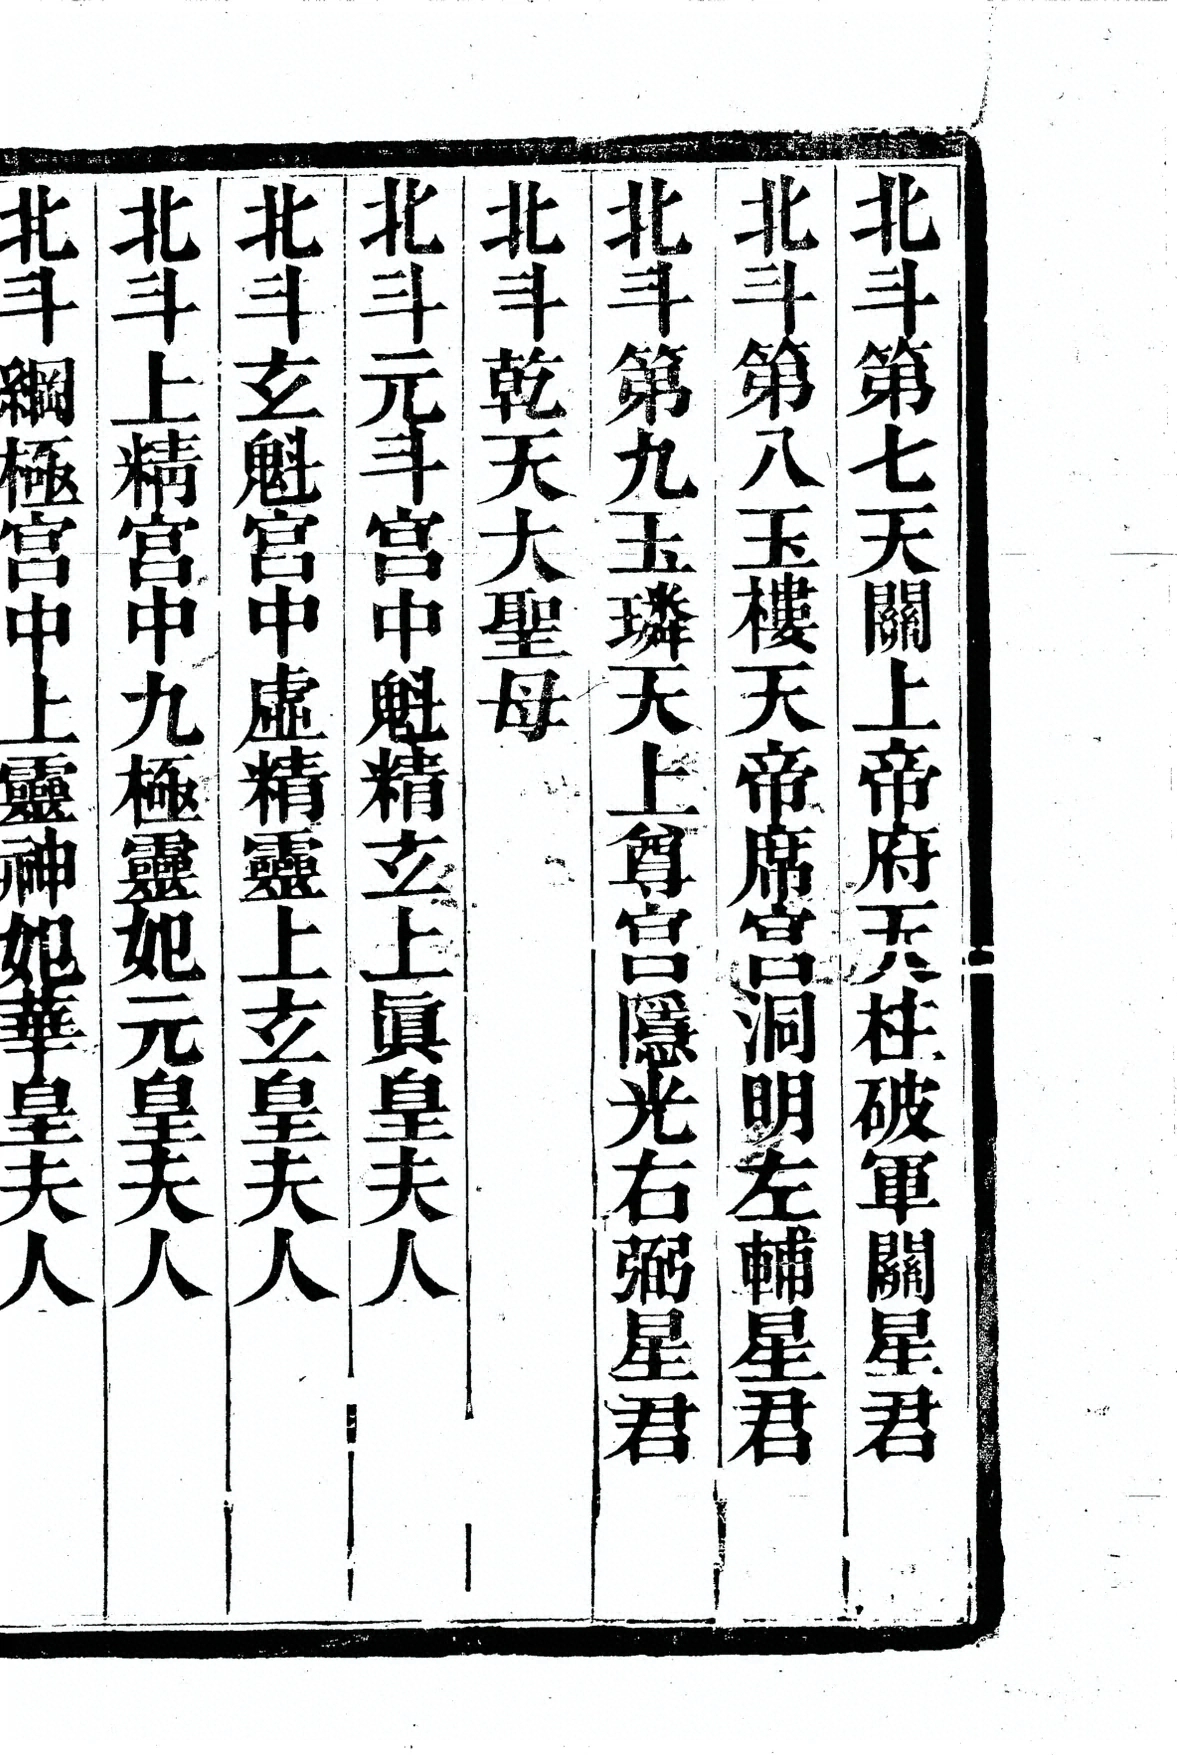 北斗第七天關上帝府天柱破軍關星君
北斗第八玉樓天帝席宮洞明左輔星君
北斗第九玉璘天上尊宮隱光右弼星君
北斗乾天大聖母
北斗元斗宮中魁精玄上眞皇夫人
北斗玄魁宮中虛精靈上玄皇夫人
北斗上精宮中九極靈妃元皇夫人
北斗綱極宮中上靈神妃華皇夫人